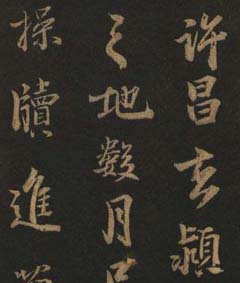 許昌 潁
之地數月
操牘進